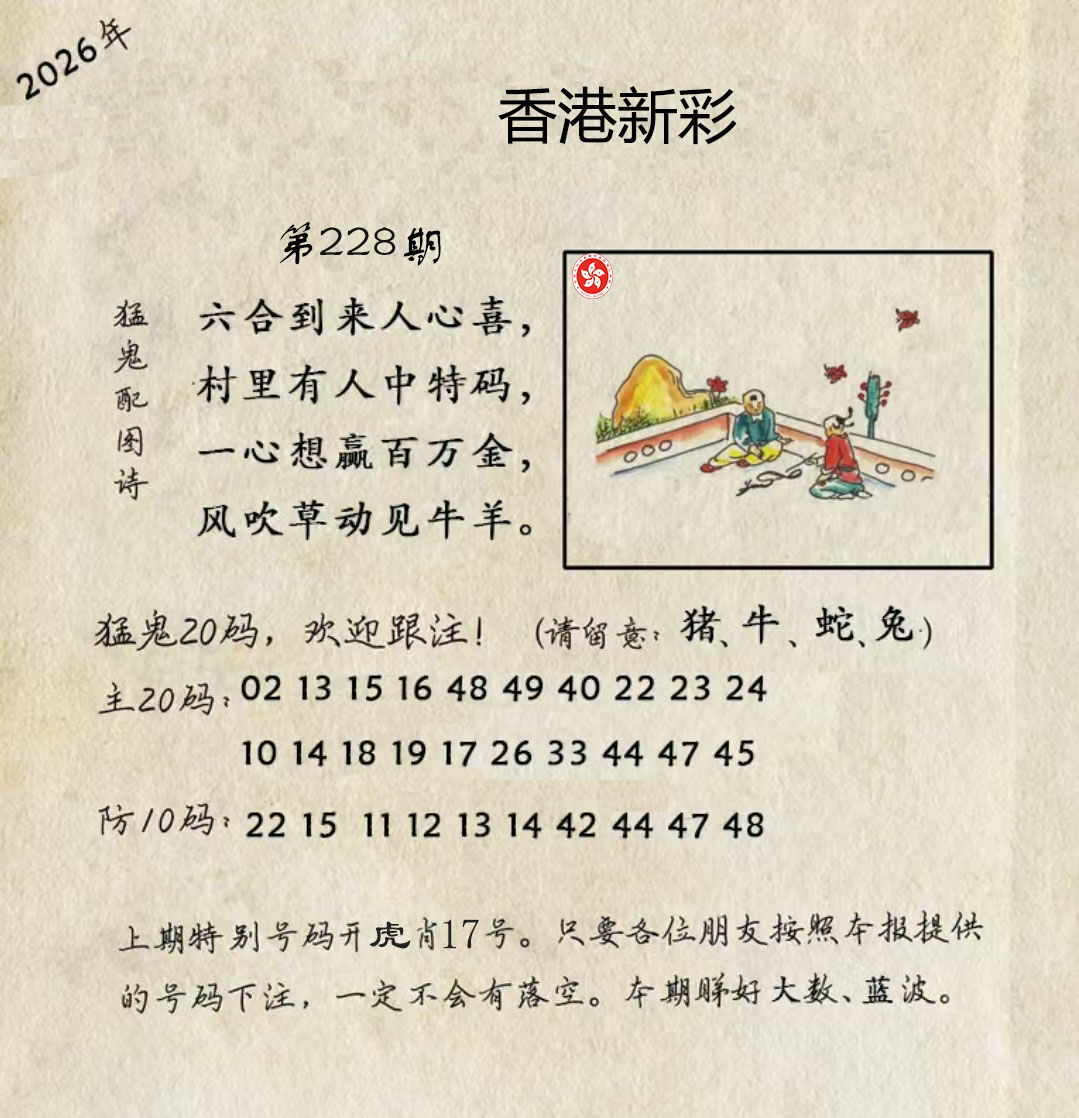 2026年
香港新彩
第228期
猛鬼配图诗
六合到来人心喜，
村里有人中特码，
一心想赢百万金，
风吹草动见牛羊。
猛鬼20码，欢迎跟注！（请留意：猪、牛、蛇、兔）
主20码：02 13 15 16 48 49 40 22 23 24
10 14 18 19 17 26 33 44 47 45
防10码：22 15 11 12 13 14 42 44 47 48
上期特别号码开虎肖17号。只要各位朋友按照本报提供
的号码下注，一定不会有落空。本期睇好大数、蓝波。